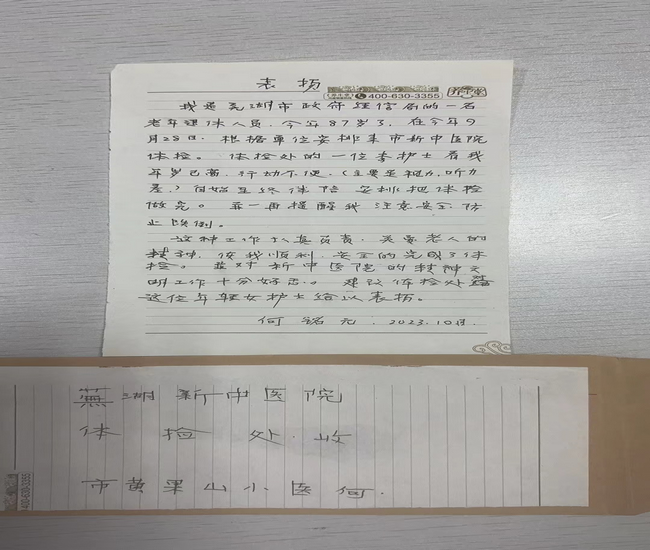 表扬
400-630-3355
我是芜湖市政府经信局的一名
老年退休人员，今年87岁了，在今年9
月28日，根据单位安排来市新中医院
体检。体检处的一位李护士看我
年岁已高，行动不便，（主要是视力，听力
差，）自始至终体陪安排把体检
做完。并一再提醒我注意安全防
止跌倒。
这种工作认真负责，关爱老人的
精神，使我顺利，安全的完成了体
检。并对新中医院的精神文
明工作十分好感。建议体检处
这位年轻女护士给以表扬。
何铭元，2023.10月.
蕪湖新中医院
体检处 收
市黄果山小医何.
400-630-3355